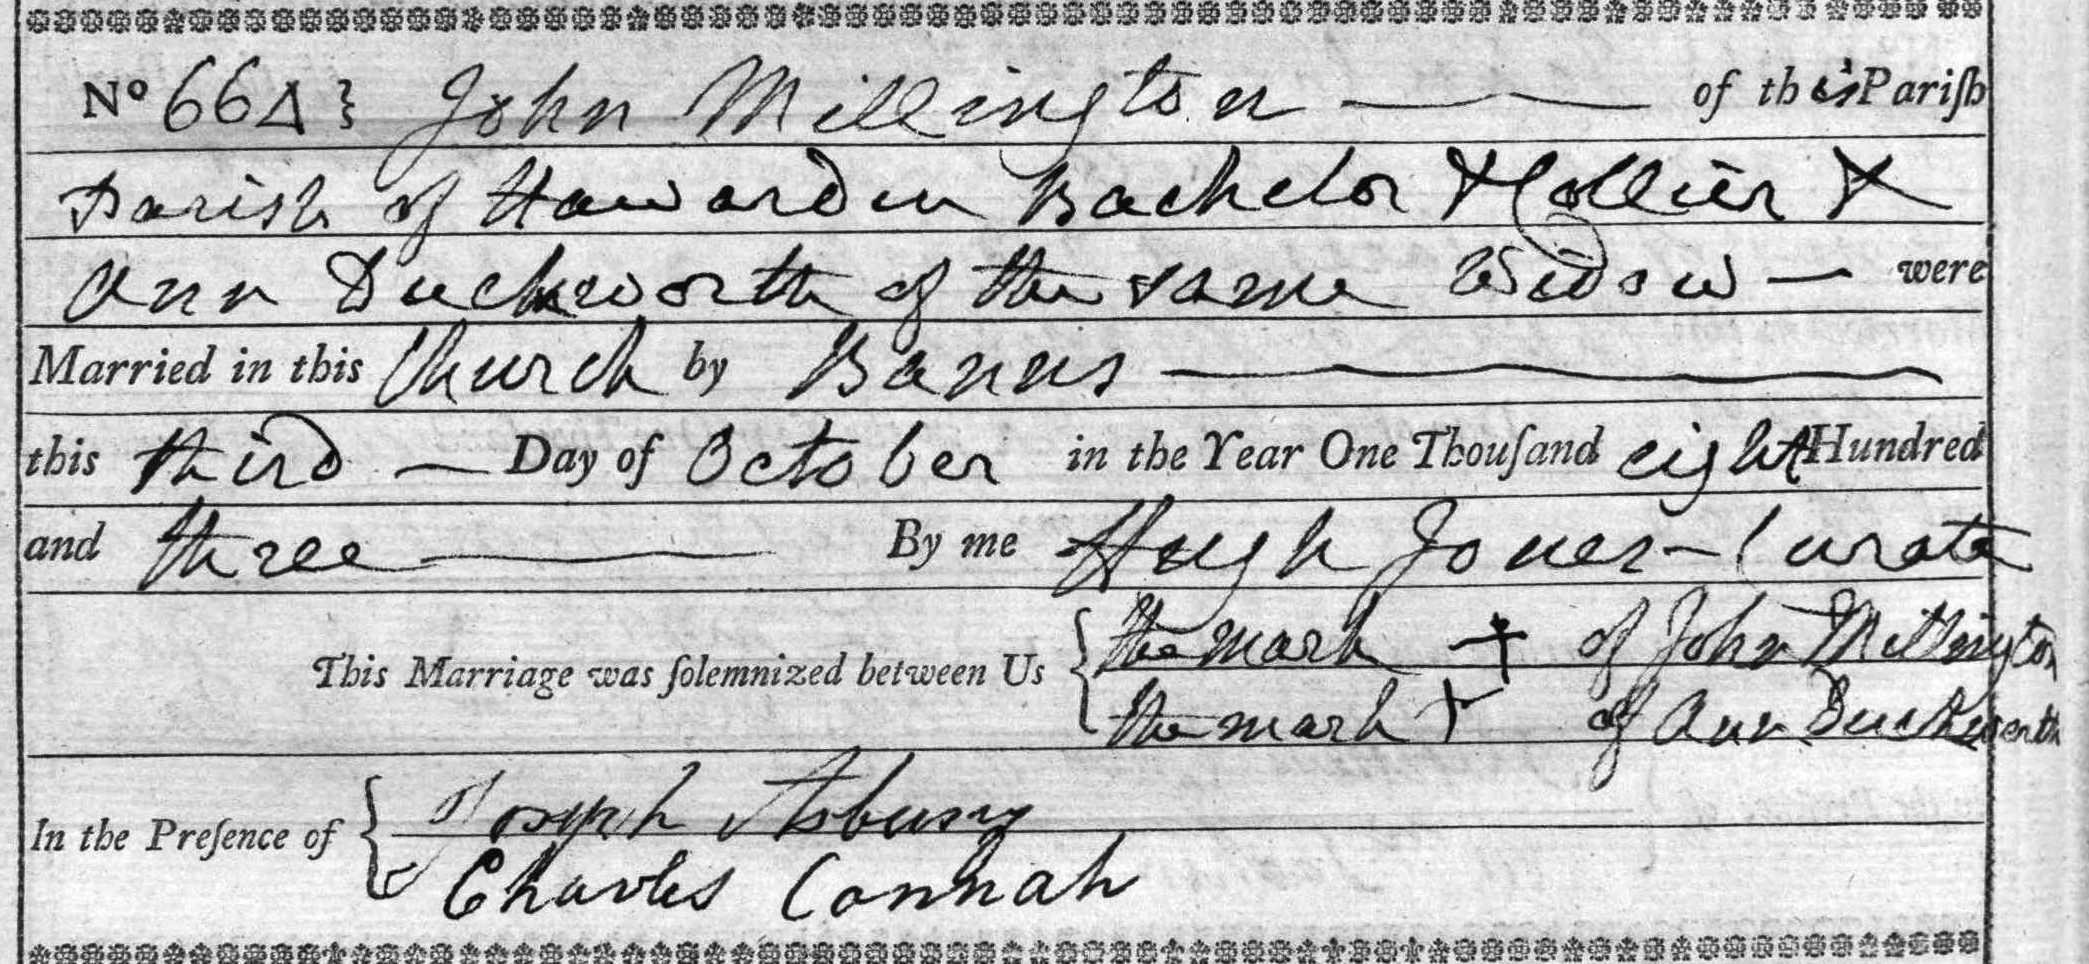 No 664} John Millington of this Parish
Parish of Hawarden Bachelor & Collier &
Ann Duckworth of the same Widow — were
Married in this Church by Banns
this third — Day of October in the Year One Thouſand eight Hundred
and three — By me Hugh Jones - Curate
This Marriage was ſolemnized between Us { the mark + of John Millington
the mark + of Ann Duckworth
In the Preſence of { Joseph Asbury
Charles Connah